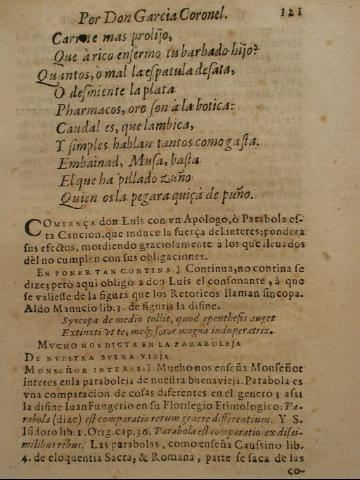 Por Don Garcia Coronel. 121
Carrete mas prolijo,
Que à rico enfermo tu barbado hijo?
Quantos, o mal la espatula desata,
O desmiente la plata
Pharmacos, oro son à la botica:
Caudal es, que lambica,
Y simples hablan tantos como gasta.
Embainad, Musa, basta
El que ha pillado zuño
Quien os la pegara quiçà de puño.
COMIENÇA don Luis con vn Apologo, ò Parabola es-
ta Cancion, que induce la fuerça del interes; pondera
sus efectos, mordiendo graciosamente à los que lleuados
dèl no cumplen con sus obligaciones.
EN PONER TAN CONTINA.] Continua, no contina se
dize; pero aqui obligò a don Luis el consonante, à que
se valiesse de la figura que los Retoricos llaman sincopa.
Aldo Manucio lib. 3. de figuris la difine.
Syncopa de medio tollit, quod epenthesis auget
Extinxti vt te, meq; soror magna induperatrix.
MVCHO NOS DICTA EN LA PARABOLEJA
DE NVESTRA BVENA VIEJA
MONSEÑOR INTERES.] Mucho nos enseña Monseñor
interes en la paraboleja de nuestra buena vieja. Parabola es
vna comparacion de cosas diferentes en el genero; assi
la difine Iuan Fungerio en su Florilegio Etimologico: Pa-
rabola (dize) est comparatio rerum genere differentium. Y S.
Isidoro lib. 1. Orig. cap. 36. Parabola est comparatio ex dissi-
milibus rebus. Las parabolas, como enseña Caussino lib.
4. de eloquentia Sacra, & Romana, parte se saca de las
co-